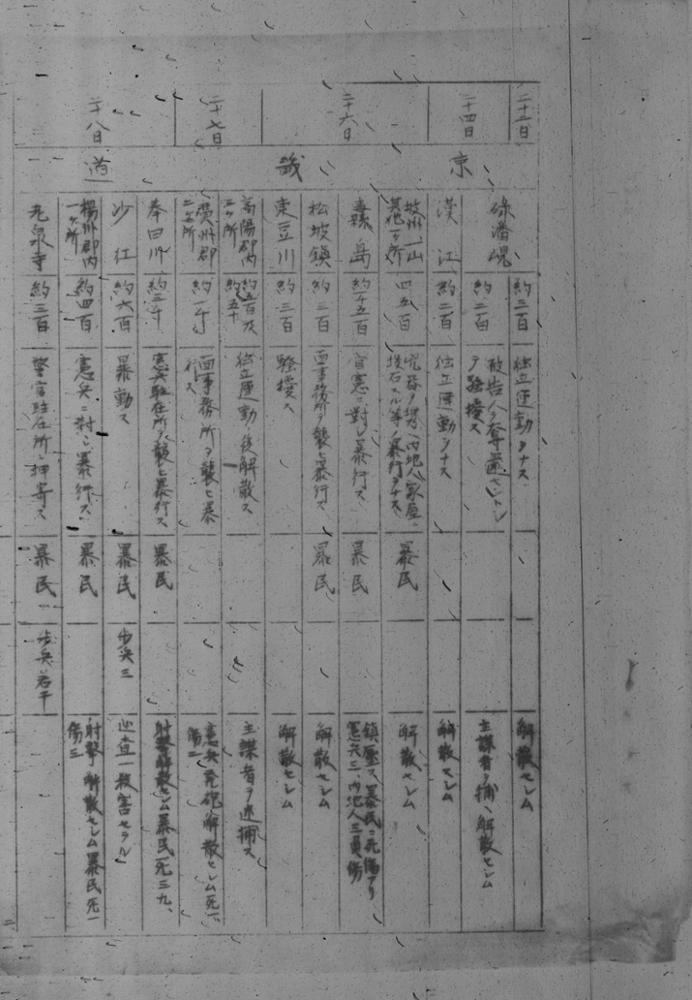 二十三日
二十四日
二十六日
二十七日
二十八日
京
畿
道
約三百
独立運動ヲナス
解散セシム
碌磻峴
約二百
被告人ヲ奪還セントシ
テ騒擾ス
主謀者ヲ捕ヘ解散セシム
漢江
約二百
独立運動ヲナス
解散セシム
坡州一山
其他一ヶ所
四五百
内地人家屋ニ
投石スル等ノ暴行ヲナス
暴民
解散セシム
纛島
約千五百
官憲ニ対シ暴行ス
暴民
鎮圧ス、暴民ニ死傷アリ
憲兵三、内地人三負傷
松坡鎮
約三百
面事務所ヲ襲ヒ暴行ス
暴民
解散セシム
東豆川
約三百
騒擾ス
解散セシム
高陽郡内
二ヶ所
約五百及
約五十
独立運動ノ後解散ス
主謀者ヲ逮捕ス
広州郡
二ヶ所
約一千
面事務所ヲ襲ヒ暴
行ス
憲兵発砲解散セシム死一、
傷二
奉日川
約三千
憲兵駐在所ヲ襲ヒ暴行ス
暴民
射撃解散セシム暴民死三九、
沙江
約六百
暴動ス
暴民
歩兵三
巡査一殺害セラル
楊州郡内
一ヶ所
約四百
憲兵ニ対シ暴行ス
暴民
射撃解散セシム暴民死一
傷三
約三百
警官駐在所ニ押寄ス
暴民
歩兵若干